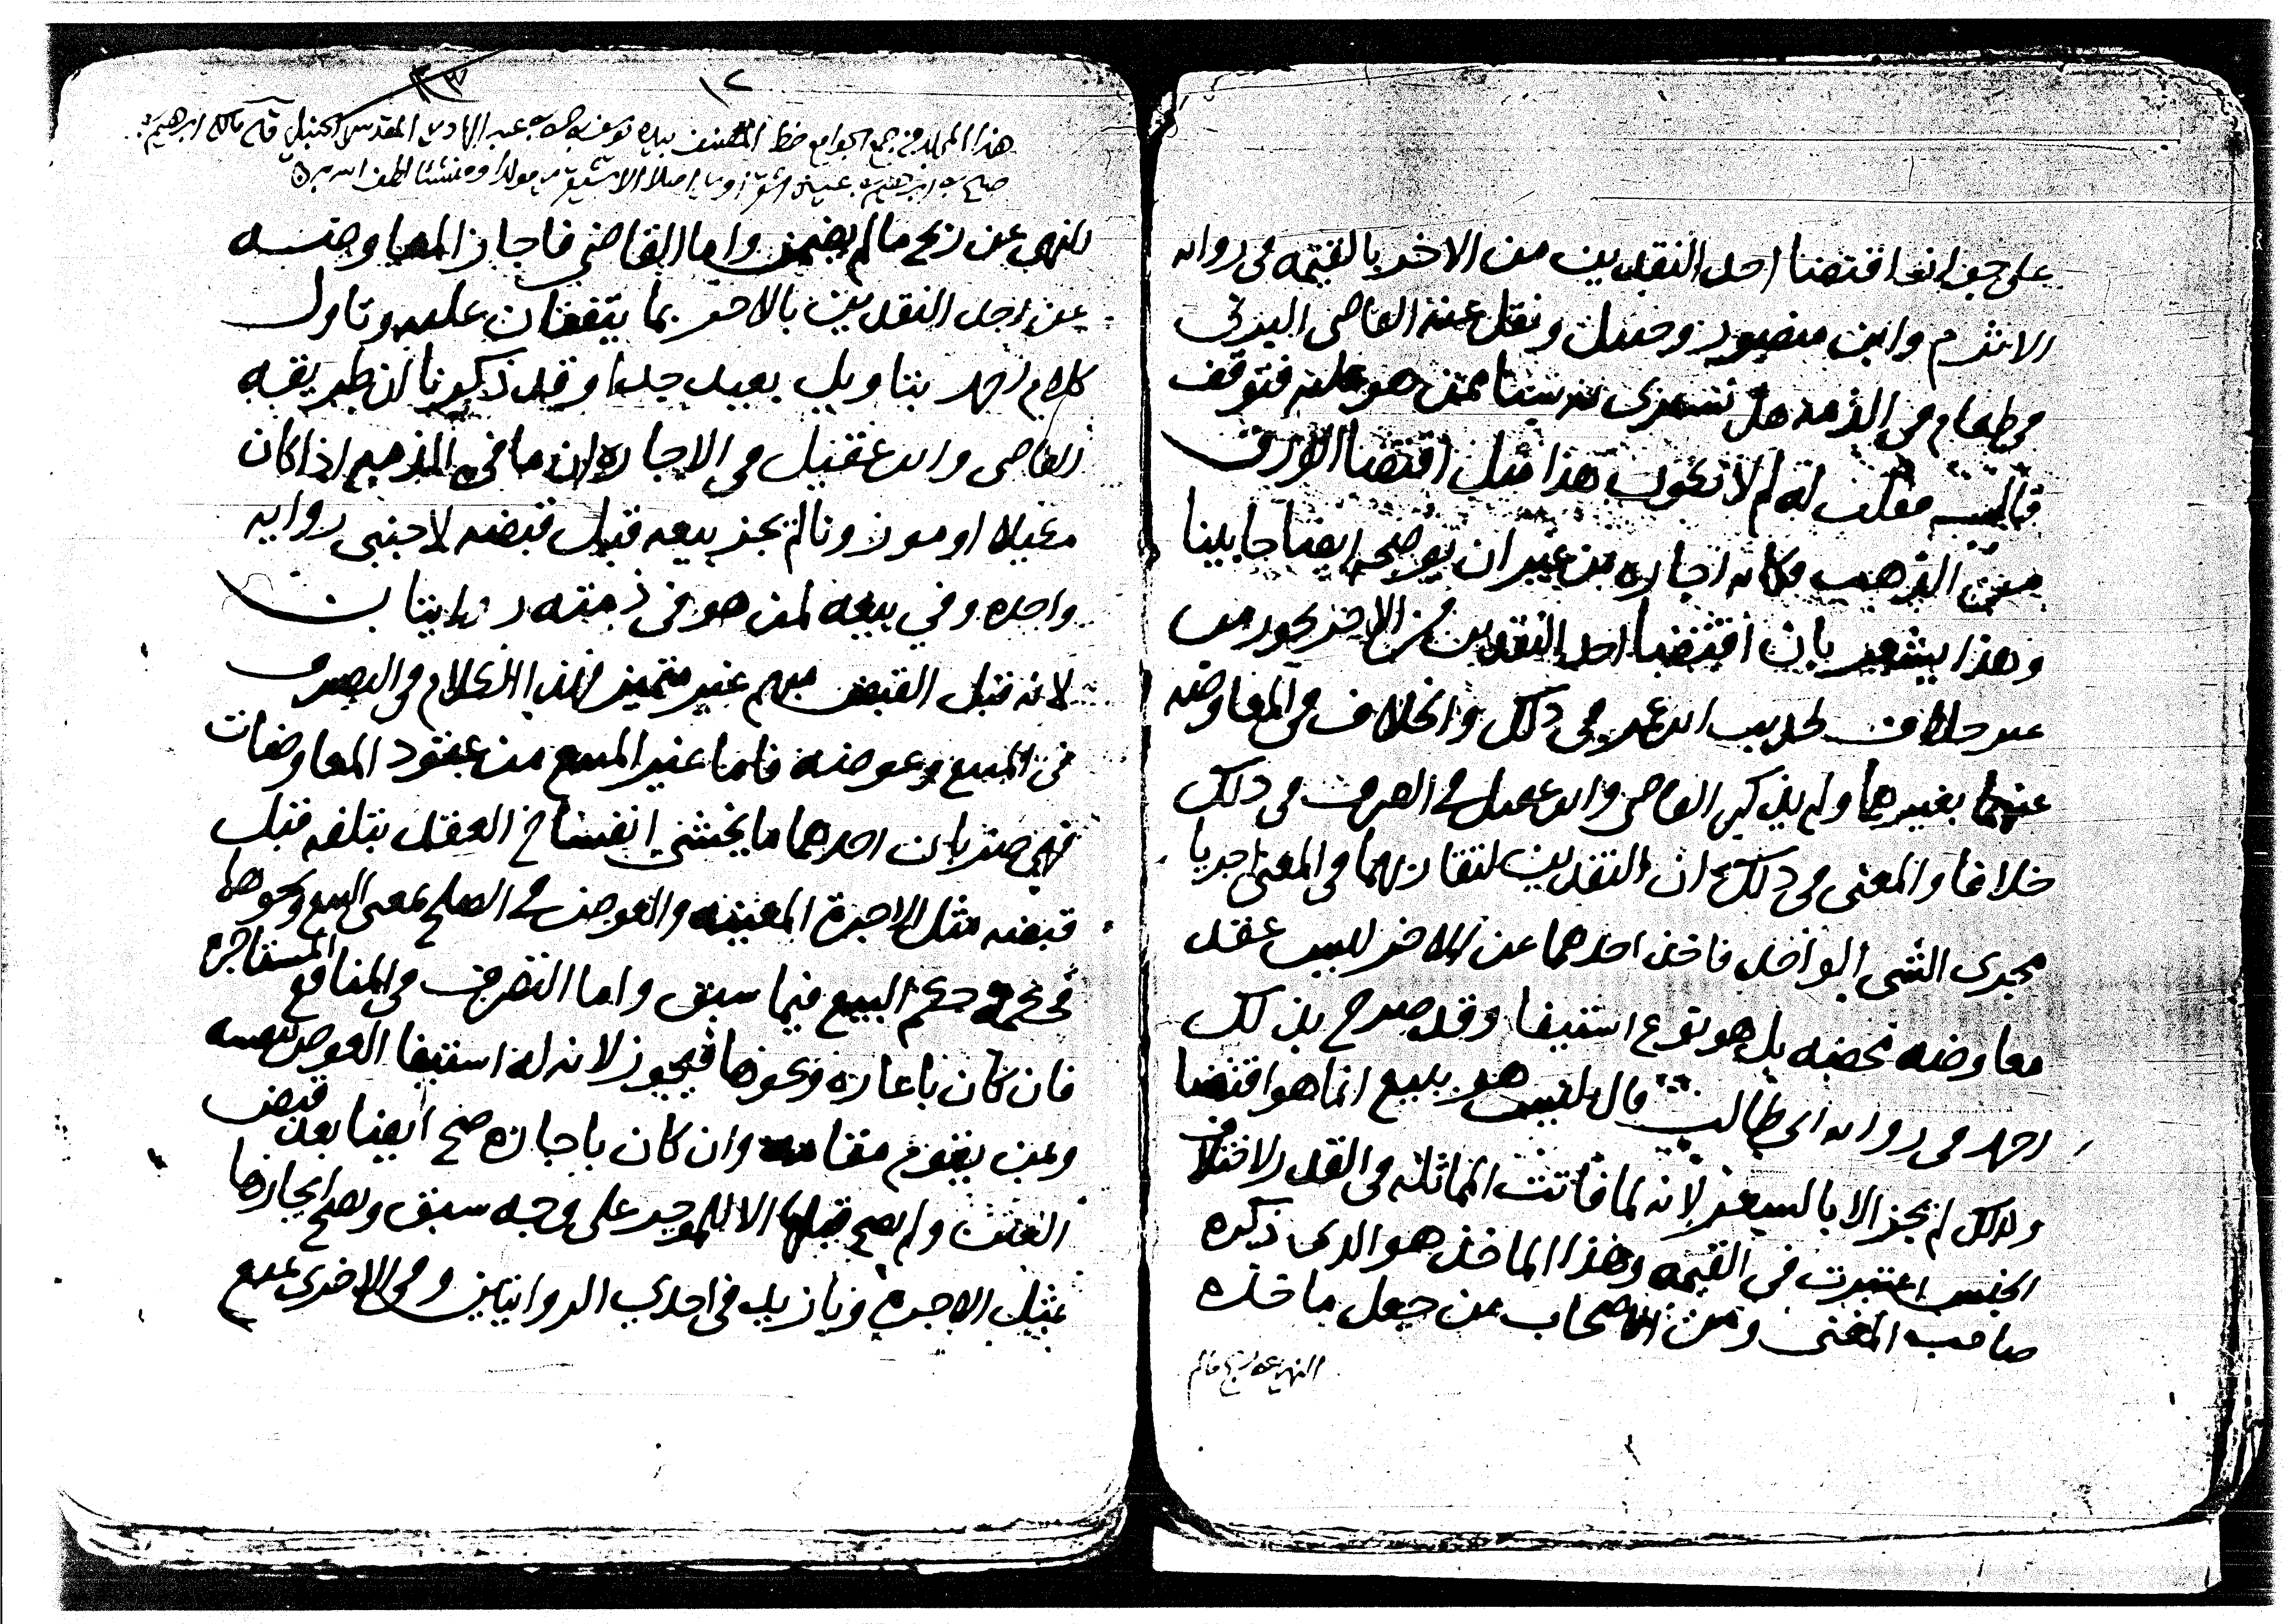 على جواز اقتضا احد النقدين من الاخر بالقيمه فى روايه
الاثرم وابن منصور وحنبل ونقل عنه القاضى البرتي
فى طعام فى الذمه هل نشترى به شيئا ممن هو عليه فتوقف
قال فقلت له لم لا تكون هذا مثل اقتضا الورق
من الذهب فكانه اجازه من غير ان يوضحه ايضا جا بينا
وهذا يشعر بان اقتضا احد النقدين من الاخر يجوز من
غير خلاف لحديث ابن عمر فى ذلك والخلاف فى المعاوضه
عنهما بغيرهما ولم يذكر القاضى وابن عقيل فى الصرف فى ذلك
خلافا والمعنى فى ذلك ان النقدين لتقاربهما فى المعنى اجريا
مجرى الشى الواحد فاخذ احدهما عن الاخر ليس عقد
معاوضه محضه بل هو نوع استيفا وقد صرح بذلك
احمد فى روايه ابى طالب قال ليس هو ببيع انما هو اقتضا
ولذلك لم يجز الا بالسعر لانه لما فاتت المماثله فى القدر لاختلاف
الجنس اعتبرت فى القيمه وهذا الماخذ هو الذى ذكره
صاحب المغنى ومن الاصحاب من جعل ماخذه
النهي عن ربح مالم
١٢
هذا المجلد من جمع الجوامع خط المصنف بيده يوسف بن حسن بن عبد الهادي المقدسي الحنبلي
للنهي عن ربح مالم يضمن واما القاضي فاجاز المعاوضه
عن احد النقدين بالاخر بما يتفقان عليه وتاول
كلام احمد بتاويل بعيد جدا وقد ذكرنا ان طريقه
القاضى وابن عقيل فى الاجاره ان ما فى الذمه اذا كان
مكيلا او موزونا لم يجز بيعه قبل قبضه لاجنبى روايه
واحده وفي بيعه لمن هو فى ذمته روايتان
لانه قبل القبض مبهم غير متميز فهذا الكلام فى التصرف
فى المبيع وعوضه فاما غير المبيع من عقود المعاوضات
فهي ضربان احدهما ما يخشى انفساخ العقد بتلفه قبل
قبضه مثل الاجرة المعينه والعوض فى الصلح بمعنى البيع ونحوهما
فحكمه حكم البيع فيما سبق واما التصرف فى المنافع المستاجره
فان كان باعاره ونحوها فيجوز لانه له استيفا العوض بنفسه
وبمن يقوم مقامه وان كان باجاره صح ايضا بعد قبض
العين ولم يصح قبلها الا للموجر على وجه سبق ويصح ايجارها
بمثل الاجره وبازيد فى احدى الروايتين وفى الاخرى يمنع